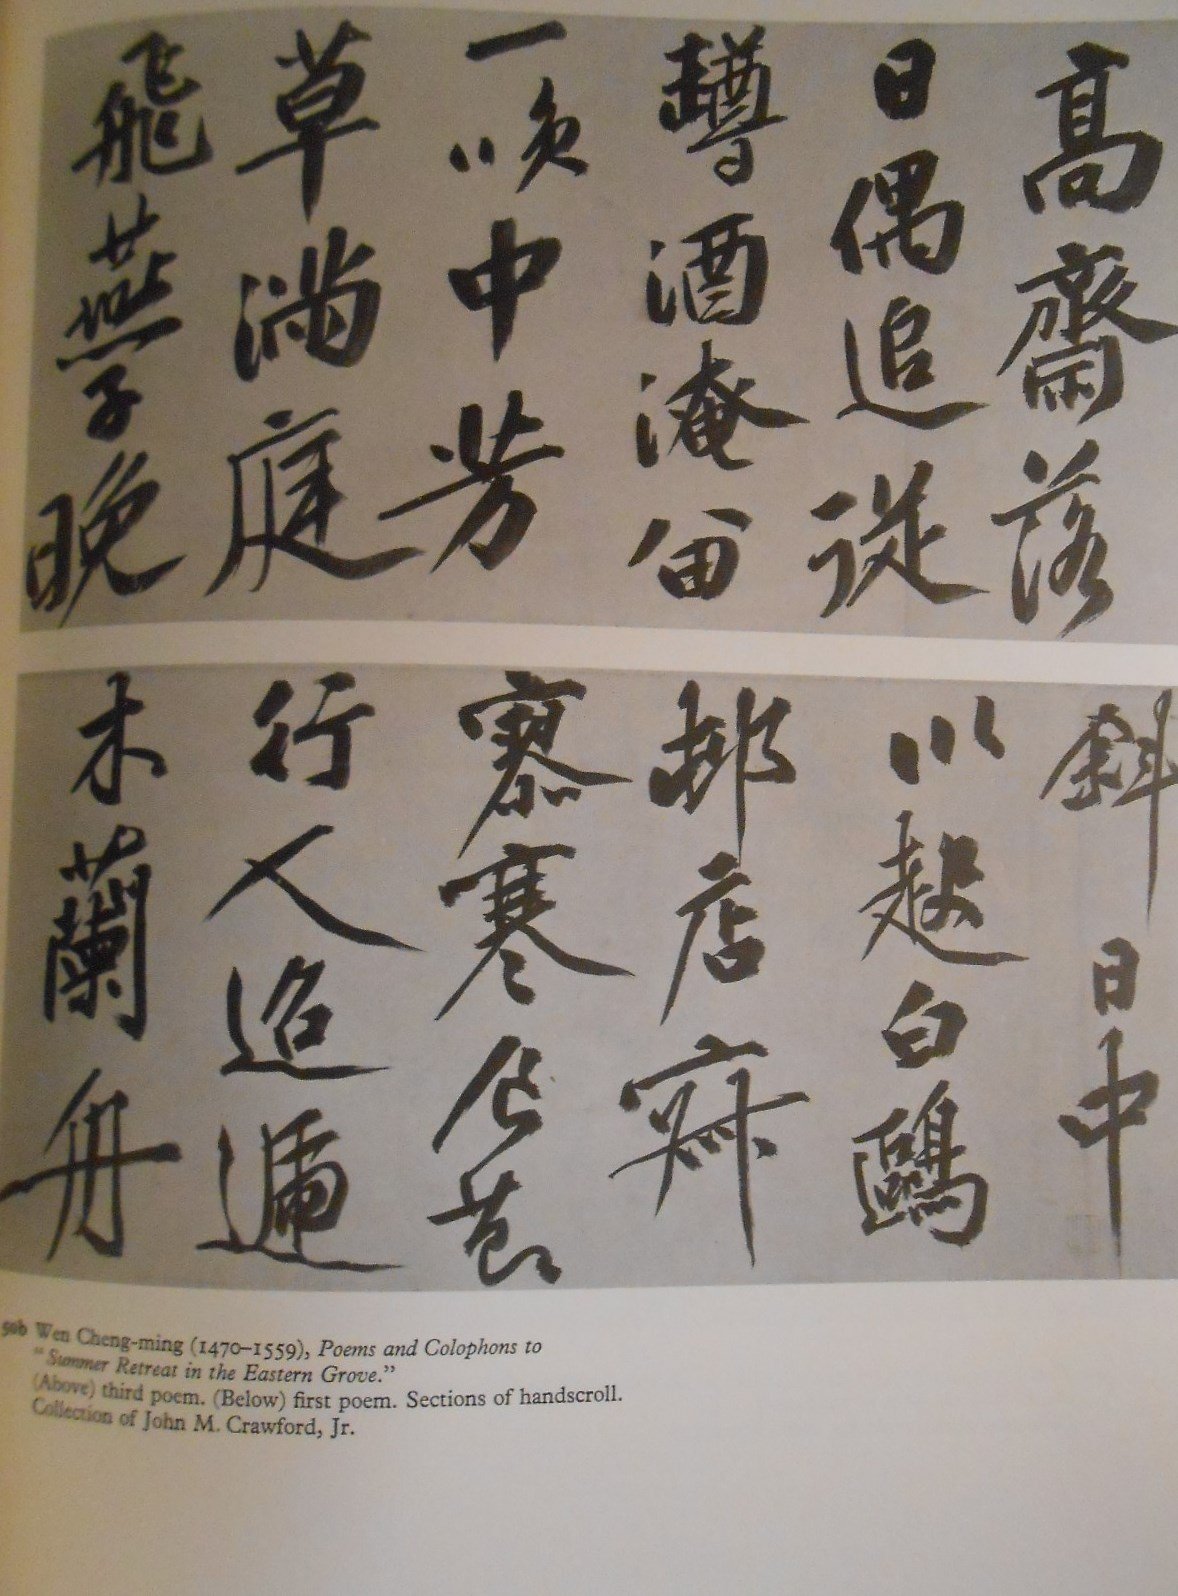 高齋落
日偶追從
罇酒淹留
一咲中芳
草滿庭
飛燕晚
斜日中
川起白鷗
邨店寂
寥寒食
行人迢遞
木蘭舟
50b Wen Cheng-ming (1470–1559), Poems and Colophons to
"Summer Retreat in the Eastern Grove."
(Above) third poem. (Below) first poem. Sections of handscroll.
Collection of John M. Crawford, Jr.